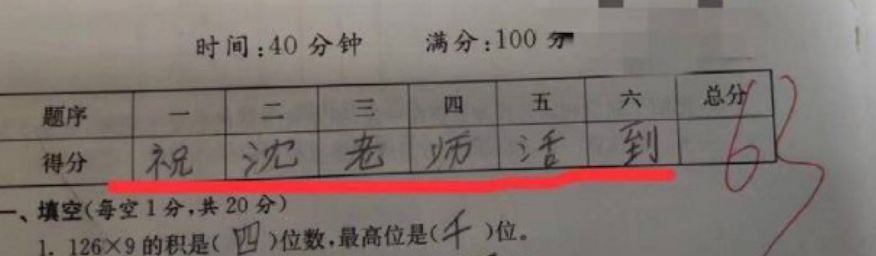 时间:40分钟 满分:100分
题序 一 二 三 四 五 六 总分
得分 祝 沈 老 师 活 到 63
一、填空(每空1分,共20分)
1. 126×9的积是(四)位数,最高位是(千)位。